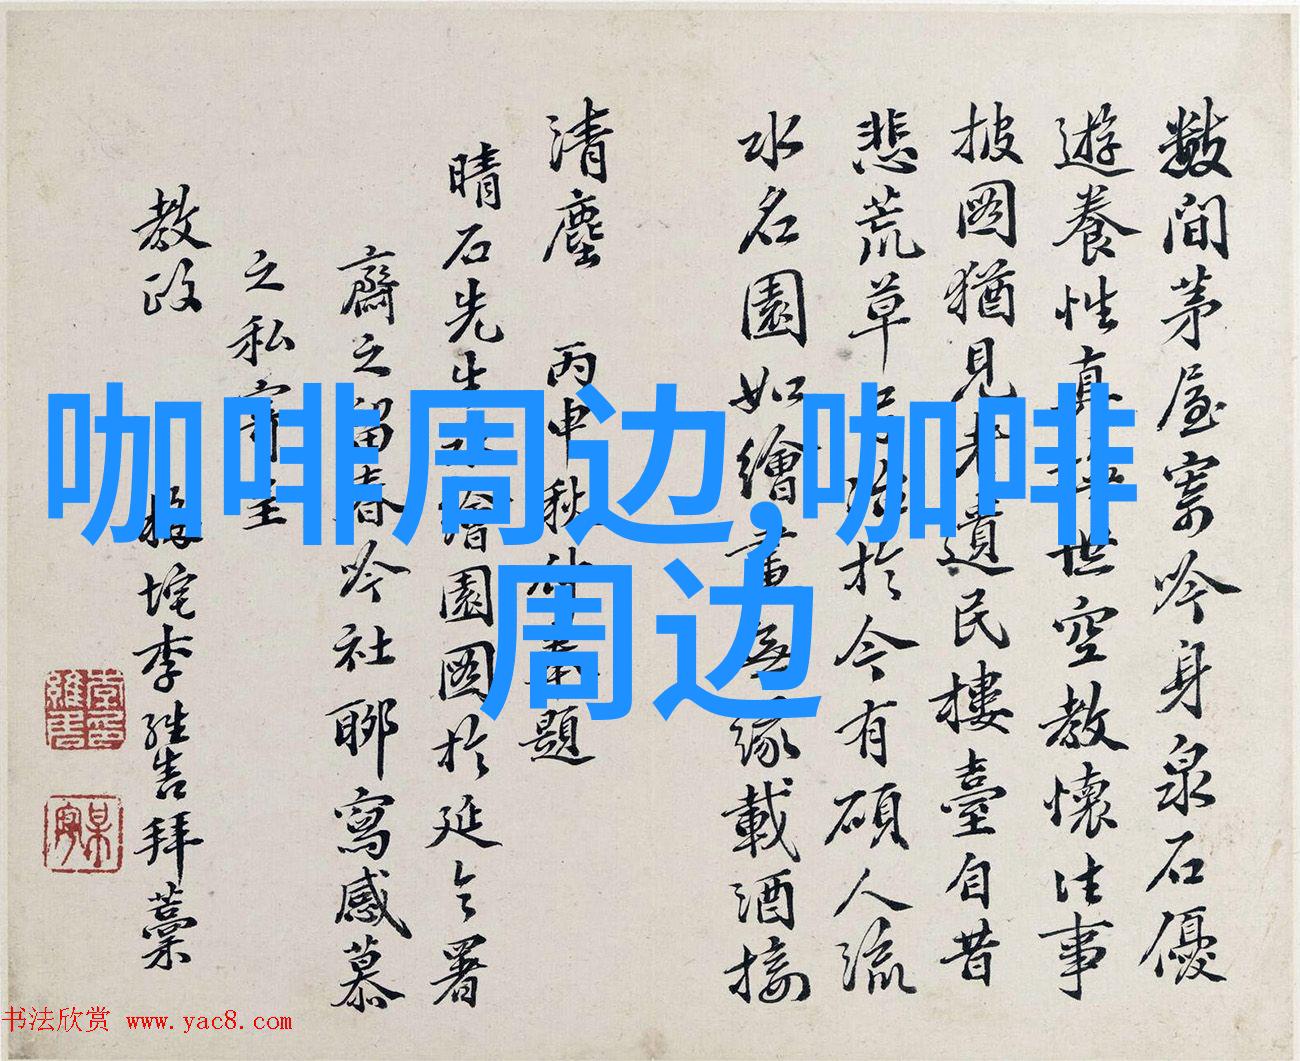 數間茅屋寄吟身泉石優
遊養性真世空教懷往事
披圖猶見老遺民樓臺自昔
悲荒草於今有碩人流
水名園如繪畫無緣載酒接
清塵 丙申秋仲奉題
晴石先生繪園圖於延令署
齋之留春吟社聊寫感慕
之私寄呈
教政 垞李拜藁
咖啡周边,咖啡
周边
书法欣赏 www.yac8.com